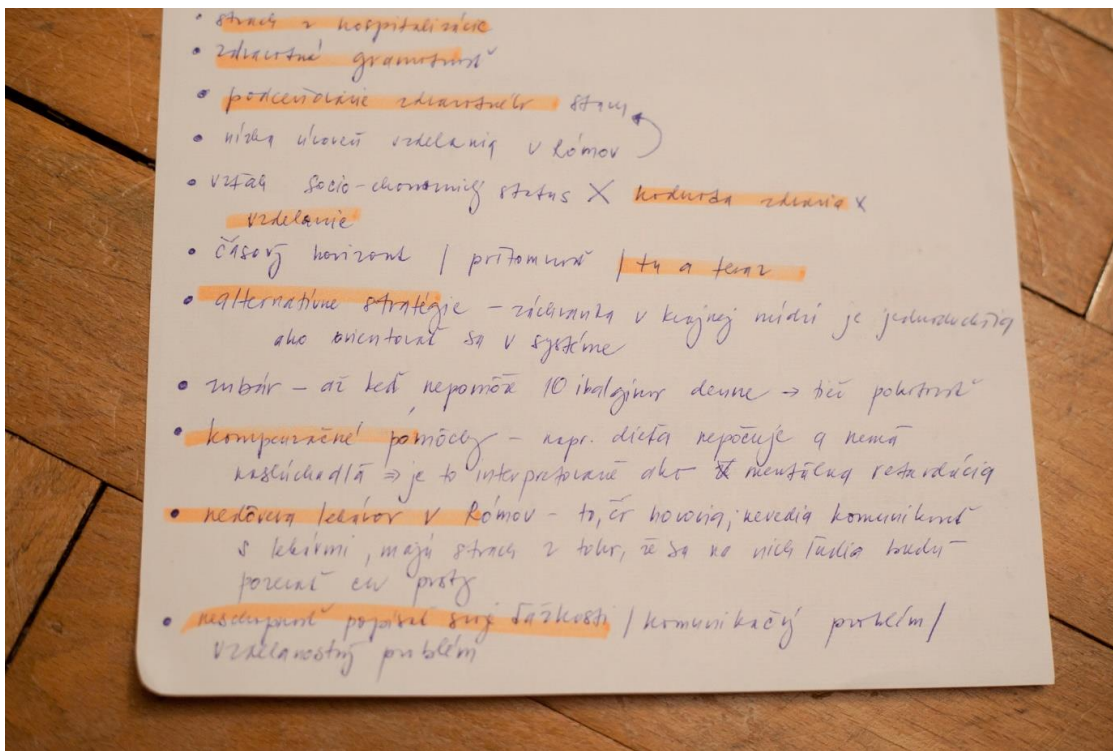 • strach z hospitalizácie
• zdravotná gramotnosť
• podceňovanie zdravotného stavu
• nízka úroveň vzdelania u Rómov
• vzťah socio-ekonomický status X hodnota zdravia x
vzdelanie
• časový horizont / prítomnosť / tu a teraz
• alternatívne stratégie – záchranka v krajnej núdzi je jednoduchšia
ako orientovať sa v systéme
• zubár – až keď nepomôže 10 ibalginov denne → tiež
• kompenzačné pomôcky – napr. dieťa nepočuje a nemá
naslúchadlá ⇒ je to interpretované ako mentálna retardácia
• nedôvera lekárov u Rómov – to, čo hovoria; nevedia komunikovať
s lekármi, majú strach z toho, že sa na nich ľudia budú
pozerať cez prsty
• neschopnosť popísať svoje ťažkosti / komunikačný problém /
vzdelanostný problém